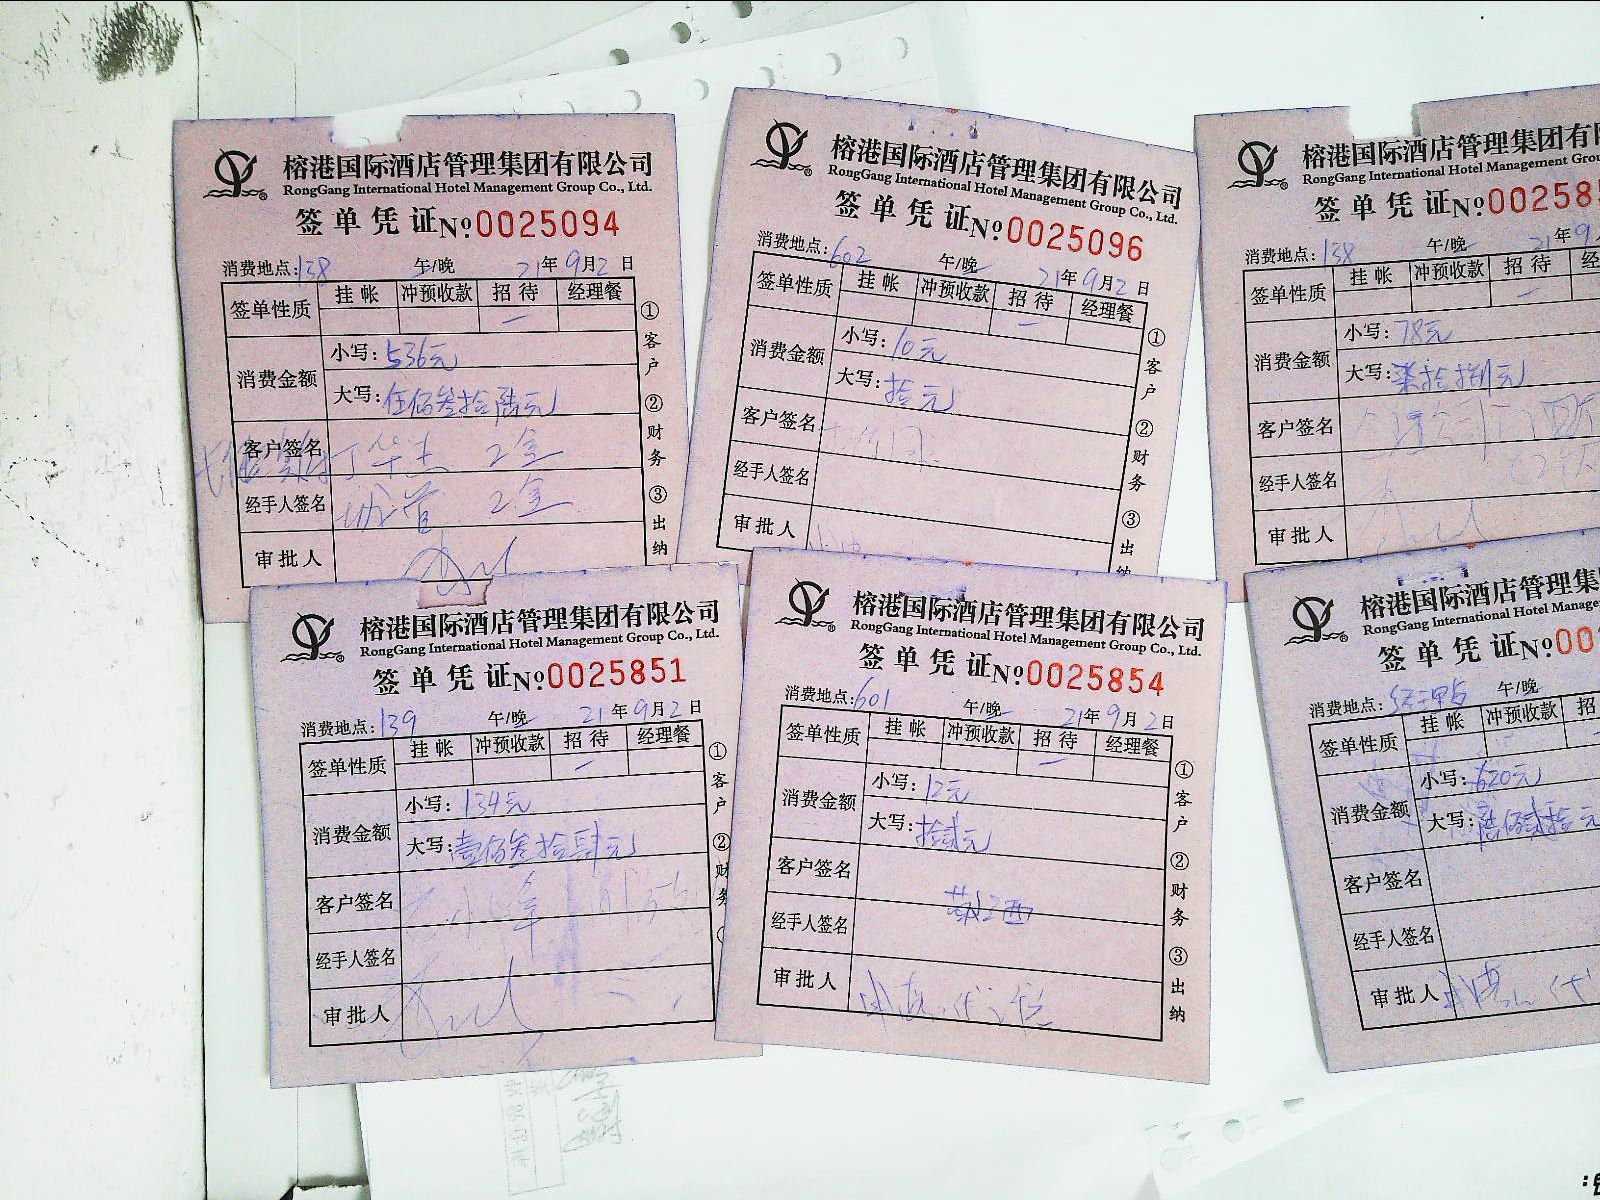 榕港国际酒店管理集团有限公司
RongGang International Hotel Management Group Co., Ltd.
签单凭证 №0025094
消费地点:138 午/晚 21年9月2日
签单性质 挂帐 冲预收款 招待 经理餐
消费金额 小写:536元
大写:伍佰叁拾陆元
客户签名
经手人签名
审批人
①客户 ②财务 ③出纳
榕港国际酒店管理集团有限公司
RongGang International Hotel Management Group Co., Ltd.
签单凭证 №0025096
消费地点:602 午/晚 21年9月2日
签单性质 挂帐 冲预收款 招待 经理餐
消费金额 小写:10元
大写:拾元
客户签名
经手人签名
审批人
①客户 ②财务 ③出纳
榕港国际酒店管理集团有限
RongGang International Hotel Management Group
签单凭证 №00258
消费地点:138 午/晚 21年9
签单性质 挂帐 冲预收款 招待
消费金额 小写:78元
大写:柒拾捌元
客户签名
经手人签名
审批人
榕港国际酒店管理集团有限公司
RongGang International Hotel Management Group Co., Ltd.
签单凭证 №0025851
消费地点:139 午/晚 21年9月2日
签单性质 挂帐 冲预收款 招待 经理餐
消费金额 小写:134元
大写:壹佰叁拾肆元
客户签名
经手人签名
审批人
①客户 ②财务
榕港国际酒店管理集团有限公司
RongGang International Hotel Management Group Co., Ltd.
签单凭证 №0025854
消费地点:601 午/晚 21年9月2日
签单性质 挂帐 冲预收款 招待 经理餐
消费金额 小写:12元
大写:拾贰元
客户签名
经手人签名
审批人
①客户 ②财务 ③出纳
榕港国际酒店管理集
RongGang International Hotel Manage
签单凭证 №00
消费地点: 午/晚
签单性质 挂帐 冲预收款 招
消费金额 小写:620元
大写:陆佰贰拾元
客户签名
经手人签名
审批人